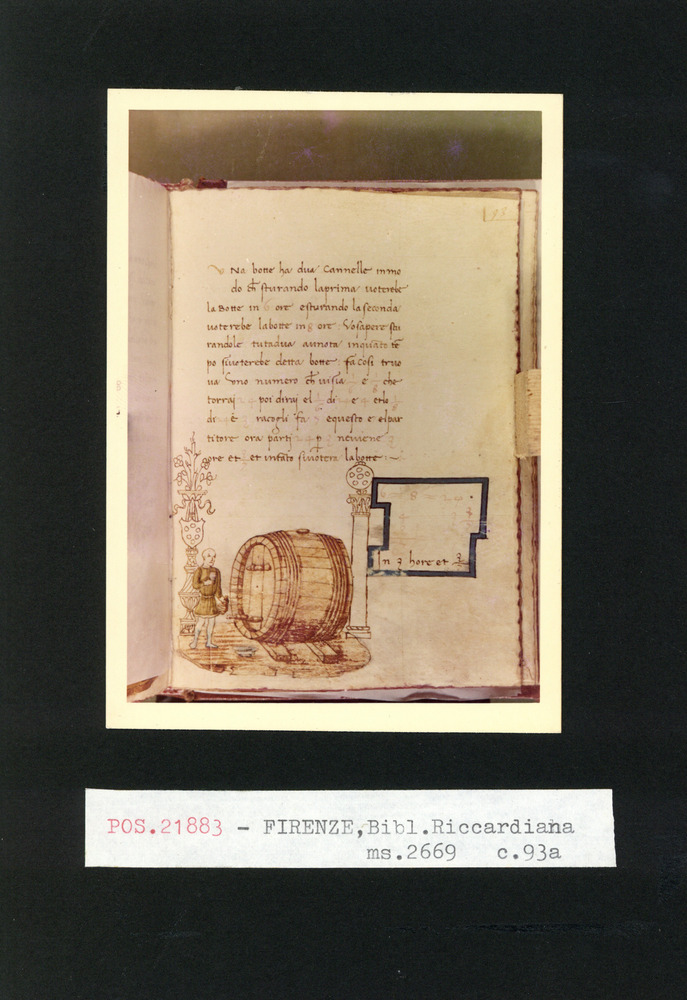 93
Na botte ha dua Cannelle inmo
do ch sturando laprima uoterebe
la Botte in 6 ore esturando la seconda
uoterebe labotte in 8 ore Vosapere stu
randole tutadua aunota inquato te
po siuoterebe detta botte fa cosi truo
ua Vno numero ch uisia e che
torrai poi dirai el di e e etlo
di e racogli fa 7 equesto e elpar
titore ora parti p 7 neuiene 3
ore et et infato siuotera labotte
8
In 3 hore et 3
POS.21883 - FIRENZE,Bibl.Riccardiana
ms.2669 c.93a